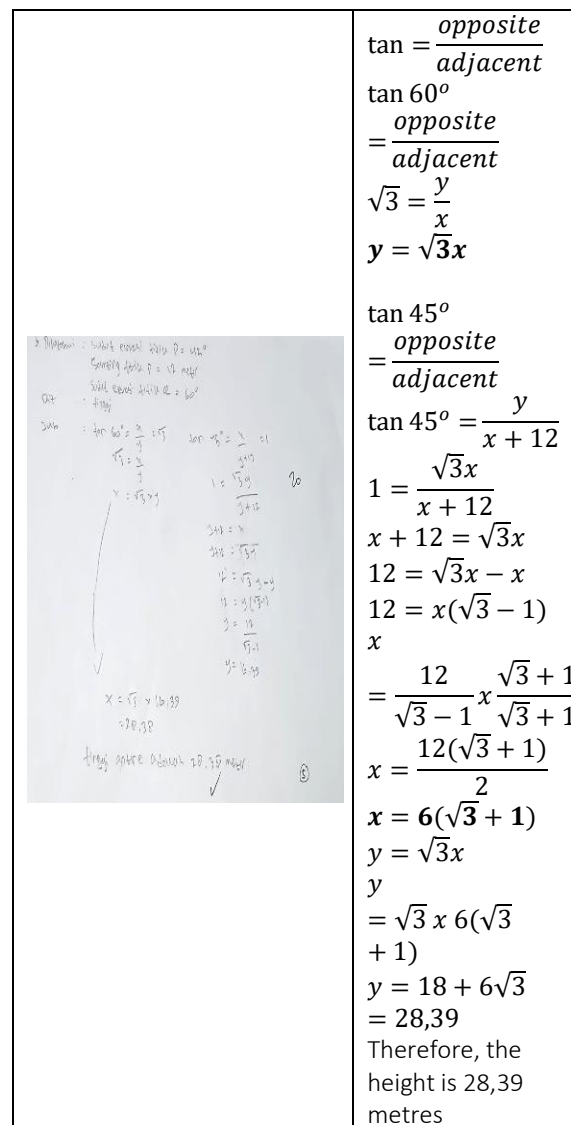 : sudut elevasi titik P = 45°
titik P = 12 meter
sudut elevasi titik Q = 60°
: tinggi
: tan 60° = x/y = √3
√3 = x/y
x = √3 y
tan 45° = x/y+12 = 1
1 = √3 y/y+12
y+12 = x
y+12 = √3 y
12 = √3 y - y
12 = y(√3-1)
y = 12/√3-1
y = 16,39
20
x = √3 × 16,39
= 28,38
tinggi adalah 28,38 meter
5
tan = opposite/adjacent
tan 60°
= opposite/adjacent
√3 = y/x
y = √3x
tan 45°
= opposite/adjacent
tan 45° = y/x + 12
1 = √3x/x + 12
x + 12 = √3x
12 = √3x − x
12 = x(√3 − 1)
x
= 12/√3 − 1 x √3 + 1/√3 + 1
x = 12(√3 + 1)/2
x = 6(√3 + 1)
y = √3x
y
= √3 x 6(√3
+ 1)
y = 18 + 6√3
= 28,39
Therefore, the
height is 28,39
metres